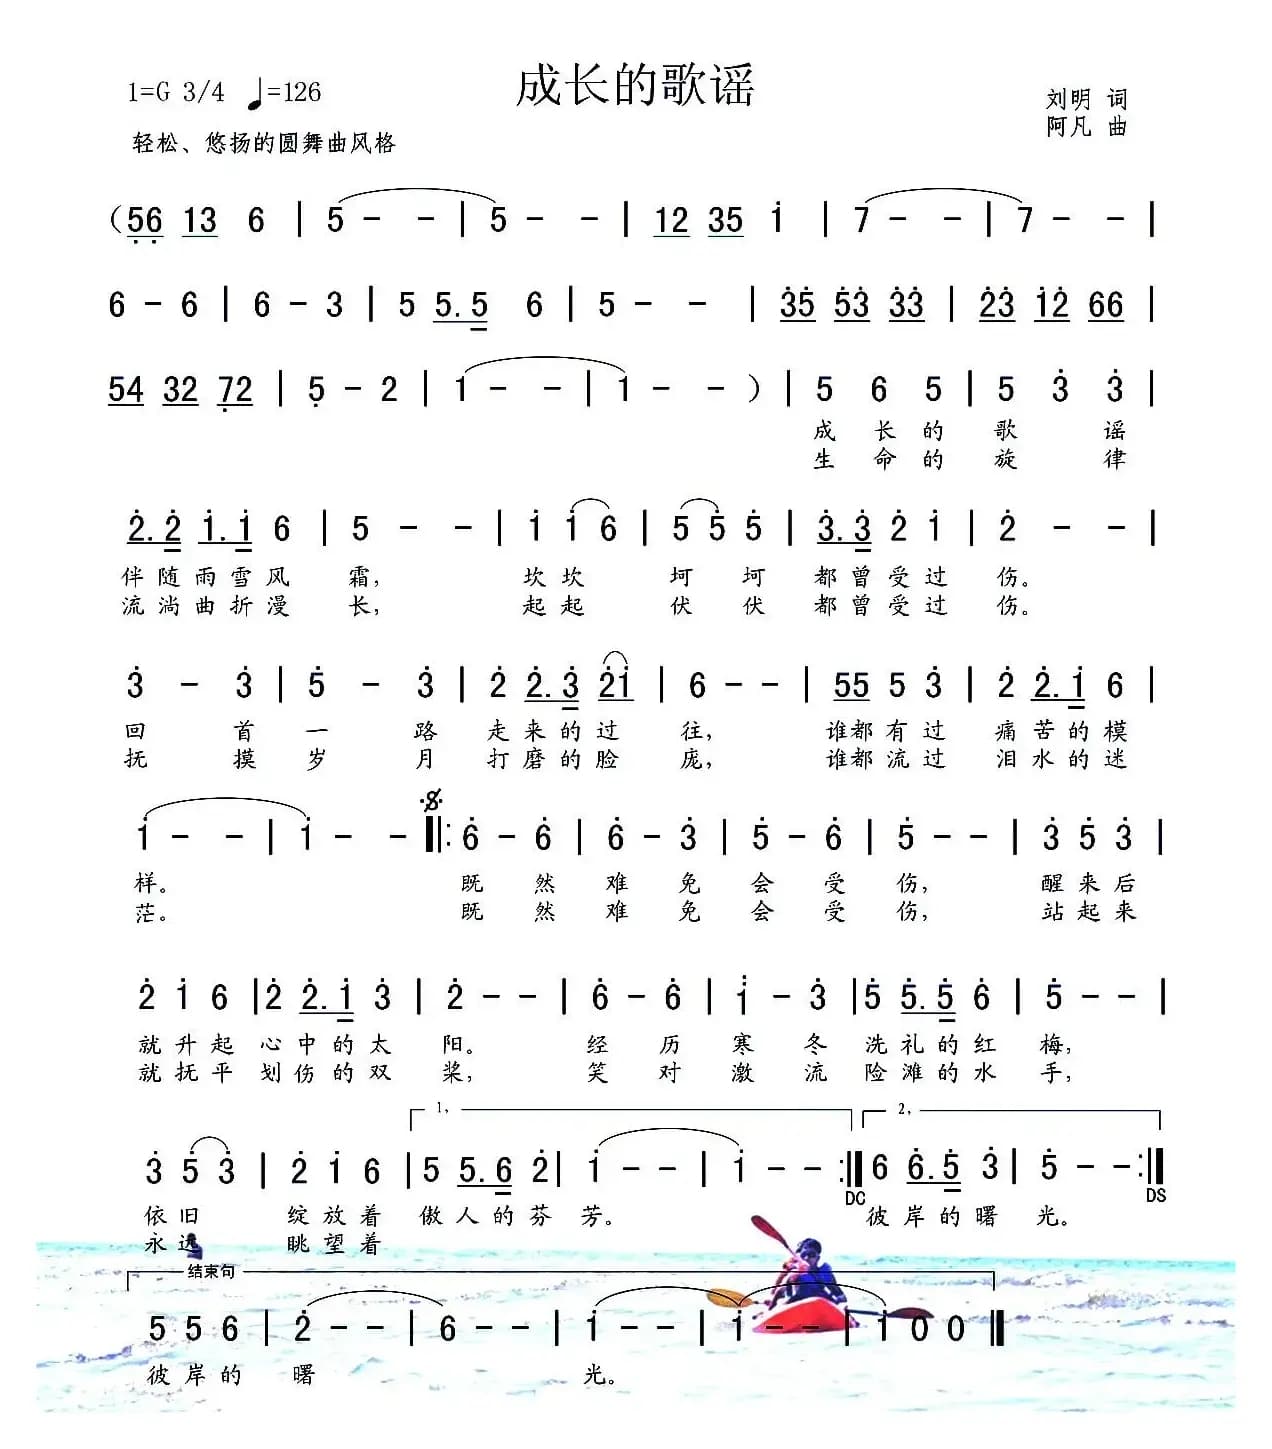 成长的歌谣
1=G 3/4 ♩=126
刘明 词
轻松、悠扬的圆舞曲风格
阿凡 曲
(5̣6̣ 13 6 | 5 - - | 5 - - | 12 35 i | 7 - - | 7 - - |
6 - 6 | 6 - 3 | 5 5.5 6 | 5 - - | 3̇5̇ 5̇3̇ 3̇3̇ | 2̇3̇ i2̇ 66 |
54 32 7̣2 | 5̣ - 2 | 1 - - | 1 - - ) | 5 6 5 | 5 3̇ 3̇ |
成 长 的 歌 谣
生 命 的 旋 律
2̇.2̇ i.i 6 | 5 - - | i i 6 | 5̇ 5̇ 5̇ | 3̇.3̇ 2̇ i | 2̇ - - |
伴 随 雨 雪 风 霜, 坎 坎 坷 坷 都 曾 受 过 伤。
流 淌 曲 折 漫 长, 起 起 伏 伏 都 曾 受 过 伤。
3̇ - 3̇ | 5̇ - 3̇ | 2̇ 2̇.3̇ 2̇i | 6 - - | 55 5 3̇ | 2̇ 2̇.i 6 |
回 首 一 路 走 来 的 过 往, 谁都 有 过 痛 苦 的 模
抚 摸 岁 月 打 磨 的 脸 庞, 谁都 流 过 泪 水 的 迷
i - - | i - - 𝄋 ‖: 6̇ - 6̇ | 6̇ - 3̇ | 5̇ - 6̇ | 5̇ - - | 3̇ 5̇ 3̇ |
样。 既 然 难 免 会 受 伤, 醒 来 后
茫。 既 然 难 免 会 受 伤, 站 起 来
2̇ i 6 | 2̇ 2̇.i 3̇ | 2̇ - - | 6̇ - 6̇ | 1̈ - 3̇ | 5̇ 5̇.5̇ 6̇ | 5̇ - - |
就 升 起 心 中 的 太 阳。 经 历 寒 冬 洗 礼 的 红 梅,
就 抚 平 划 伤 的 双 桨, 笑 对 激 流 险 滩 的 水 手,
1, 2,
3̇ 5̇ 3̇ | 2̇ i 6 | 5 5.6 2̇ | i - - | i - - :‖ 6 6̇.5̇ 3̇ | 5̇ - - :‖
DC DS
依 旧 绽 放 着 傲 人 的 芬 芳。 彼 岸 的 曙 光。
永 远 眺 望 着
结束句
5 5 6 | 2̇ - - | 6 - - | i - - | i - - | i 0 0 ‖
彼 岸 的 曙 光。